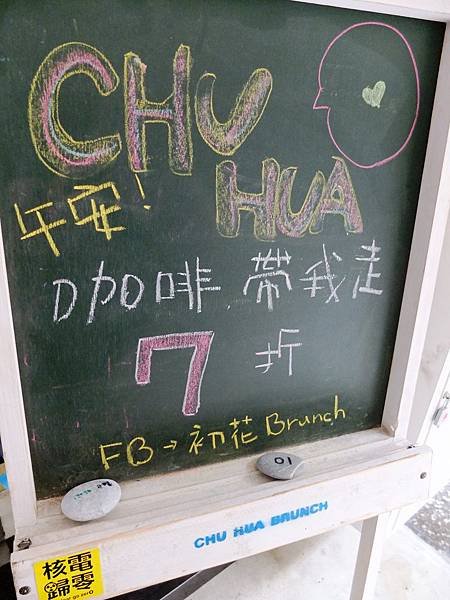 CHU
HUA
午安!
咖啡 帶我走
7折
FB→初花Brunch
10
CHU HUA BRUNCH
核電
歸零